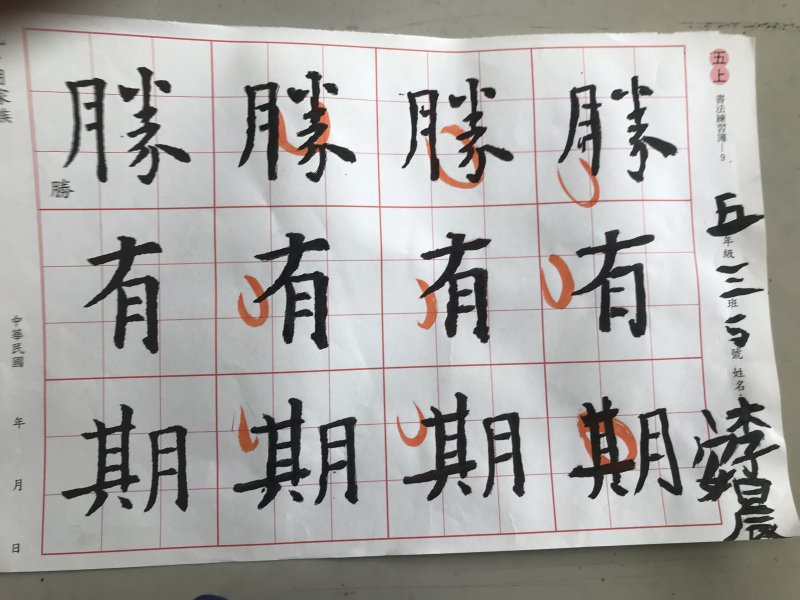 五上
書法練習簿—9
五年級三班 號姓名 李
勝有期
勝有期
勝有期
勝有期
勝
中華民國 年 月 日